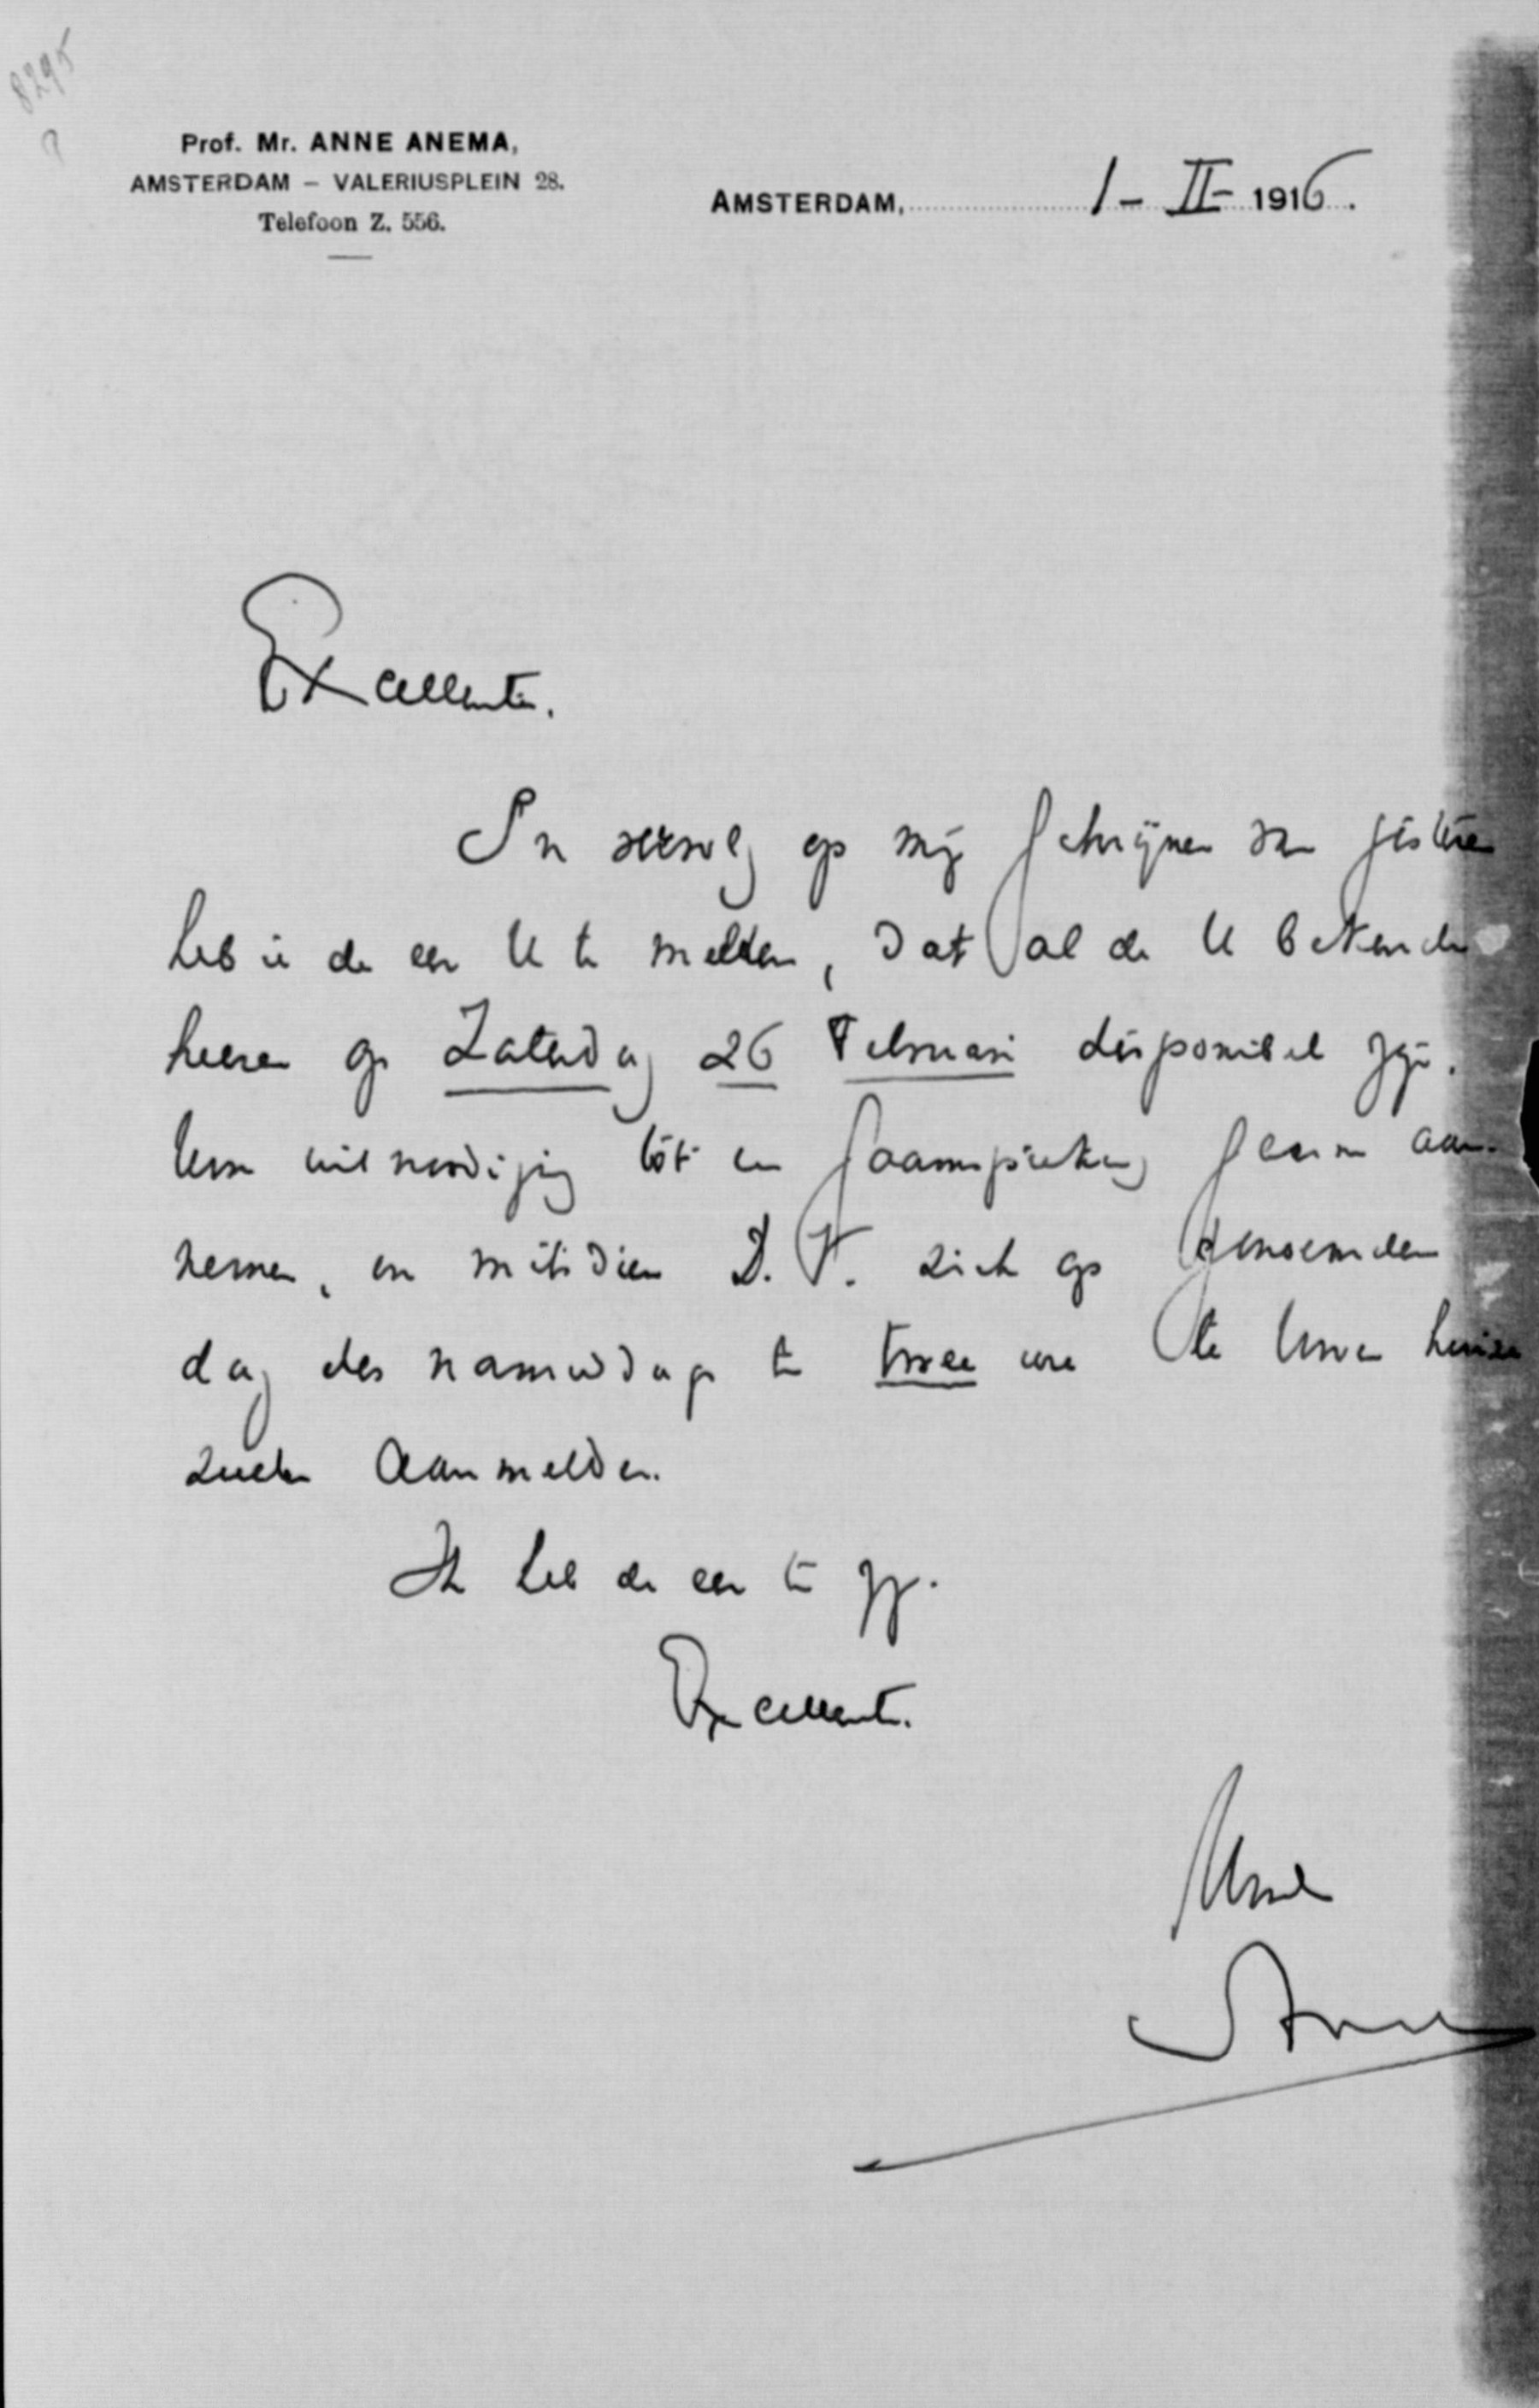 8295
Prof. Mr. ANNE ANEMA,
AMSTERDAM – VALERIUSPLEIN 28.
Telefoon Z. 556.
AMSTERDAM, 1 - II - 1916.
Excellentie.
In vervolg op mijn schrijven van gisteren
heb ik de eer U te melden, dat al de U bekende
heeren op Zaterdag 26 Februari disponibel zijn.
Uwe uitnoodiging tot een saamspreking gaarne aan-
nemen, en mitsdien D.V. zich op genoemden
dag des namiddags te twee ure te Uwen huize
zullen aanmelden.
Ik heb de eer te zijn.
Excellentie.
Uwe
Anema